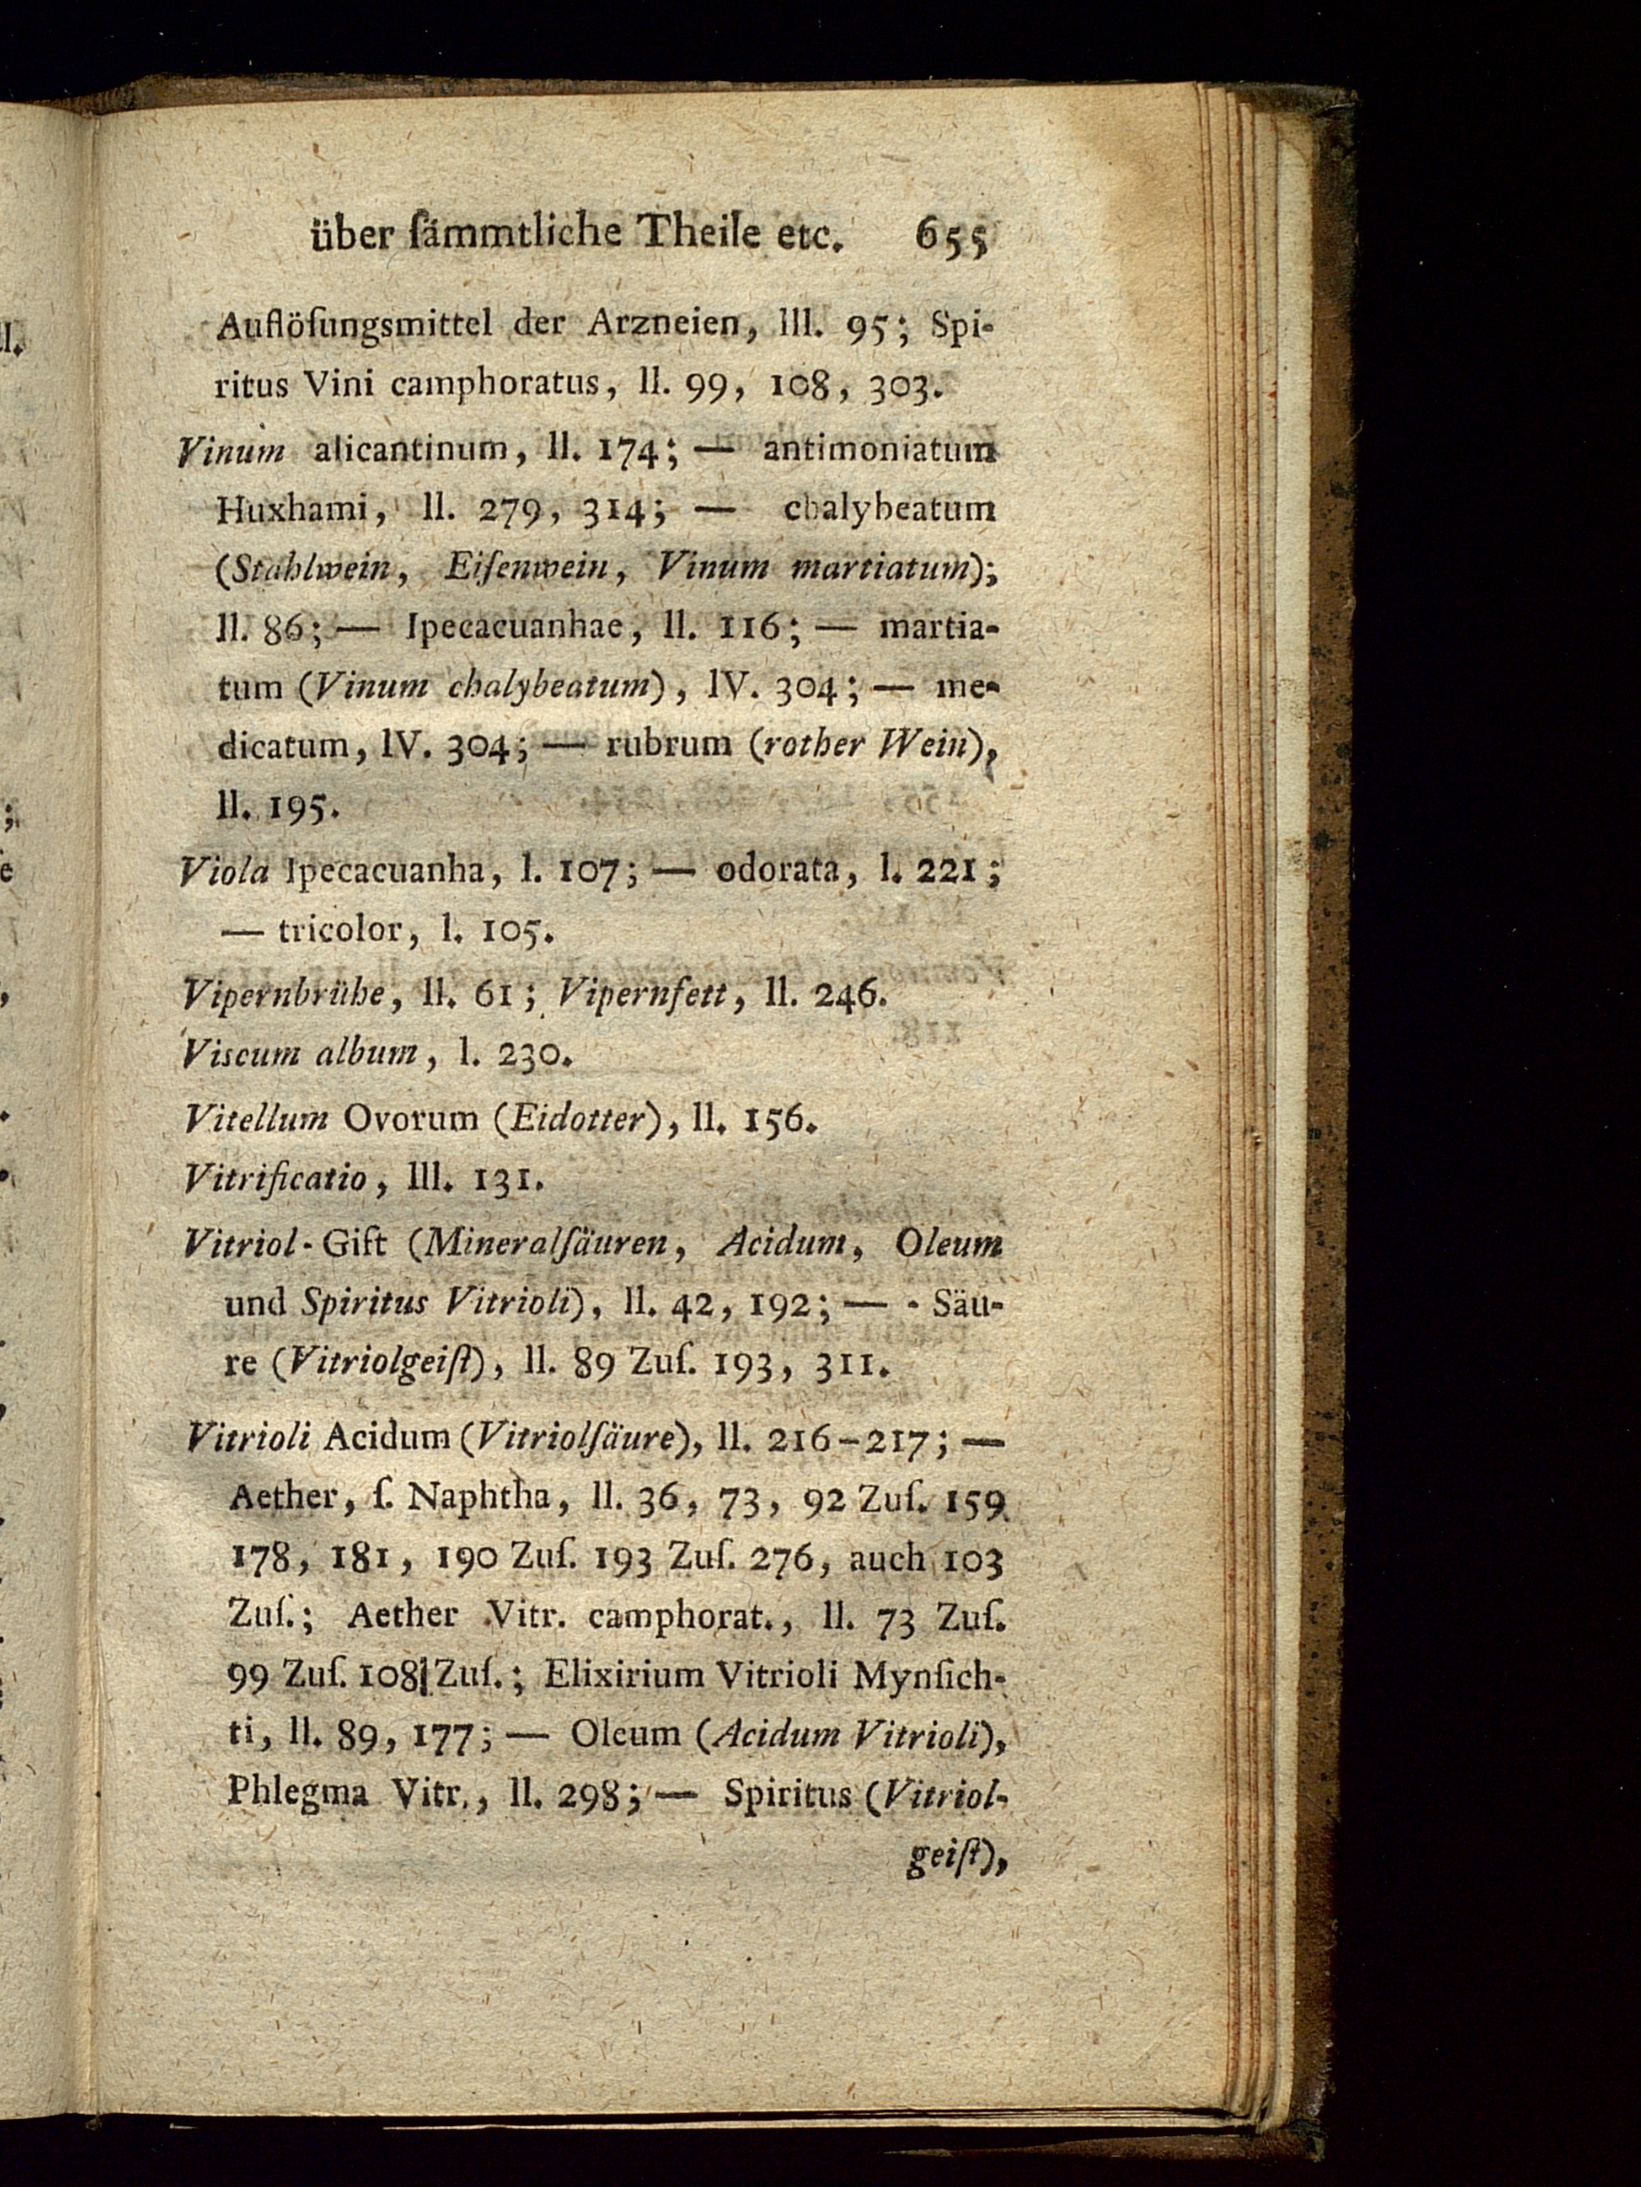 über ſämmtliche Theile etc. 655
Auflöſungsmittel der Arzneien, lll. 95; Spi-
ritus Vini camphoratus, ll. 99, 108, 303.
Vinum alicantinum, ll. 174; — antimoniatum
Huxhami, ll. 279, 314; — chalybeatum
(Stahlwein, Eiſenwein, Vinum martiatum);
ll. 86; — Ipecacuanhae, ll. 116; — martia-
tum (Vinum chalybeatum), lV. 304; — me-
dicatum, lV. 304; — rubrum (rother Wein),
ll. 195.
Viola Ipecacuanha, l. 107; — odorata, l. 221;
— tricolor, l. 105.
Vipernbrühe, ll. 61; Vipernfett, ll. 246.
Viscum album, l. 230.
Vitellum Ovorum (Eidotter), ll. 156.
Vitrificatio, lll. 131.
Vitriol-Gift (Mineralſäuren, Acidum, Oleum
und Spiritus Vitrioli), ll. 42, 192; — - Säu-
re (Vitriolgeiſt), ll. 89 Zuſ. 193, 311.
Vitrioli Acidum (Vitriolſäure), ll. 216-217; —
Aether, ſ. Naphtha, ll. 36, 73, 92 Zuſ. 159
178, 181, 190 Zuſ. 193 Zuſ. 276, auch 103
Zuſ.; Aether Vitr. camphorat., ll. 73 Zuſ.
99 Zuſ. 108 Zuſ.; Elixirium Vitrioli Mynſich-
ti, ll. 89, 177; — Oleum (Acidum Vitrioli),
Phlegma Vitr., ll. 298; — Spiritus (Vitriol-
geiſt),